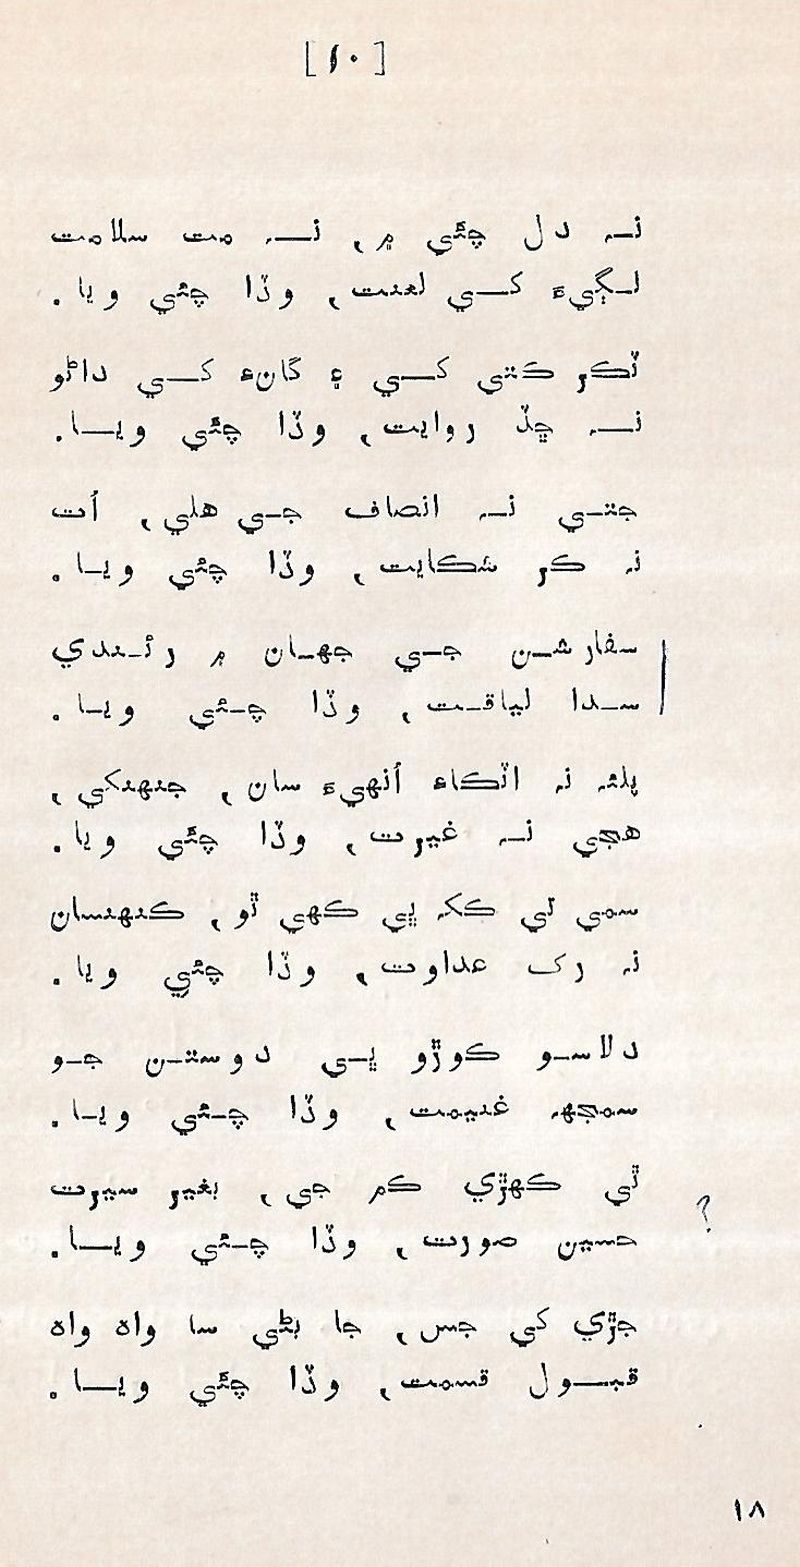 [۱۰]
نہ دل چئي ۾، نہ مت سلامت
لڳيءَ کي لعنت، وڏا چئي ويا.
ٽڪر ڪٿي کي ۽ گانءِ کي داڻو
نہ ڇڏ روايت، وڏا چئي ويا.
جتي نہ انصاف جي هلي، اُت
نہ ڪر شڪايت، وڏا چئي ويا.
سفارشن جي جهان ۾ رئندي
سدا لياقت، وڏا چئي ويا.
پلئہ نہ اٽڪاءِ اُنهيءَ سان، جنهنکي،
هجي نہ غيرت، وڏا چئي ويا.
سمي ٿي ڪکہ ڀي کهي ٿو، ڪنهنسان
نہ رک عداوت، وڏا چئي ويا.
دلاسو ڪوڙو ڀي دوستن جو
سمجهہ غنيمت، وڏا چئي ويا.
ٿي ڪهڙي ڪم جي، بغير سيرت
حسين صورت، وڏا چئي ويا.
جڙي کي جس، جا بڻي سا واه واه
قبول قسمت، وڏا چئي ويا.
؟
۱۸